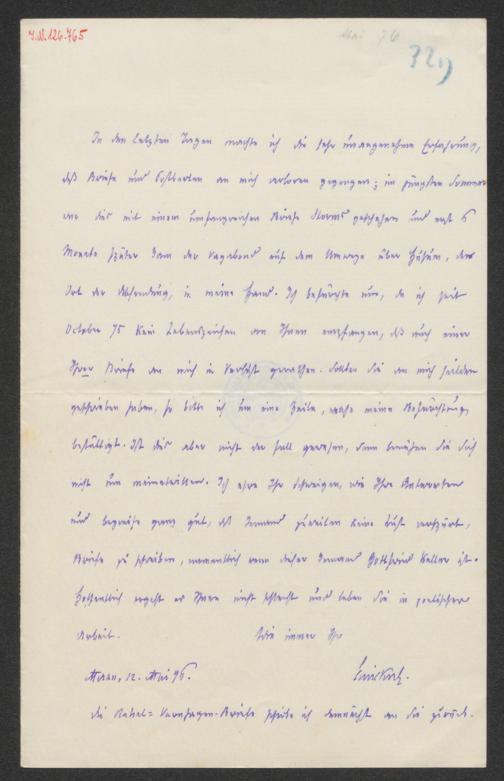 J.N. 126.765
Mai 76
32)
In den letzten Tagen machte ich die sehr unangenehme Erfahrung,
daß Briefe und Postkarten an mich verloren gegangen; im jüngsten Sommer
war dies mit einem umfangreichen Briefe Storms geschehen und erst 6
Monate später kam der Vagabond auf dem Umwege über Husum, dem
Ort der Absendung, in meine Hand. Ich befürchte nun, da ich seit
October 75 kein Lebenszeichen von Ihnen empfangen, daß auch einer
Ihrer Briefe an mich in Verlust gerathen. Sollten Sie an mich seitdem
geschrieben haben, so bitte ich um eine Zeile, welche meine Befürchtung
bestätigt. Ist dies aber nicht der Fall gewesen, dann bemühen Sie Sich
nicht um meinetwillen. Ich ehre Ihr Schweigen, wie Ihre Antworten
und begreife ganz gut, daß Jemand zuweilen keine Lust verspürt,
Briefe zu schreiben, namentlich wenn dieser Jemand Gottfried Keller ist.
Hoffentlich ergeht es Ihnen nicht schlecht und leben Sie in poetischer
Arbeit. Wie immer Ihr
Meran, 12. Mai 76. EmilKuh.
Die Rahel-Varnhagen-Briefe schicke ich demnächst an Sie zurück.